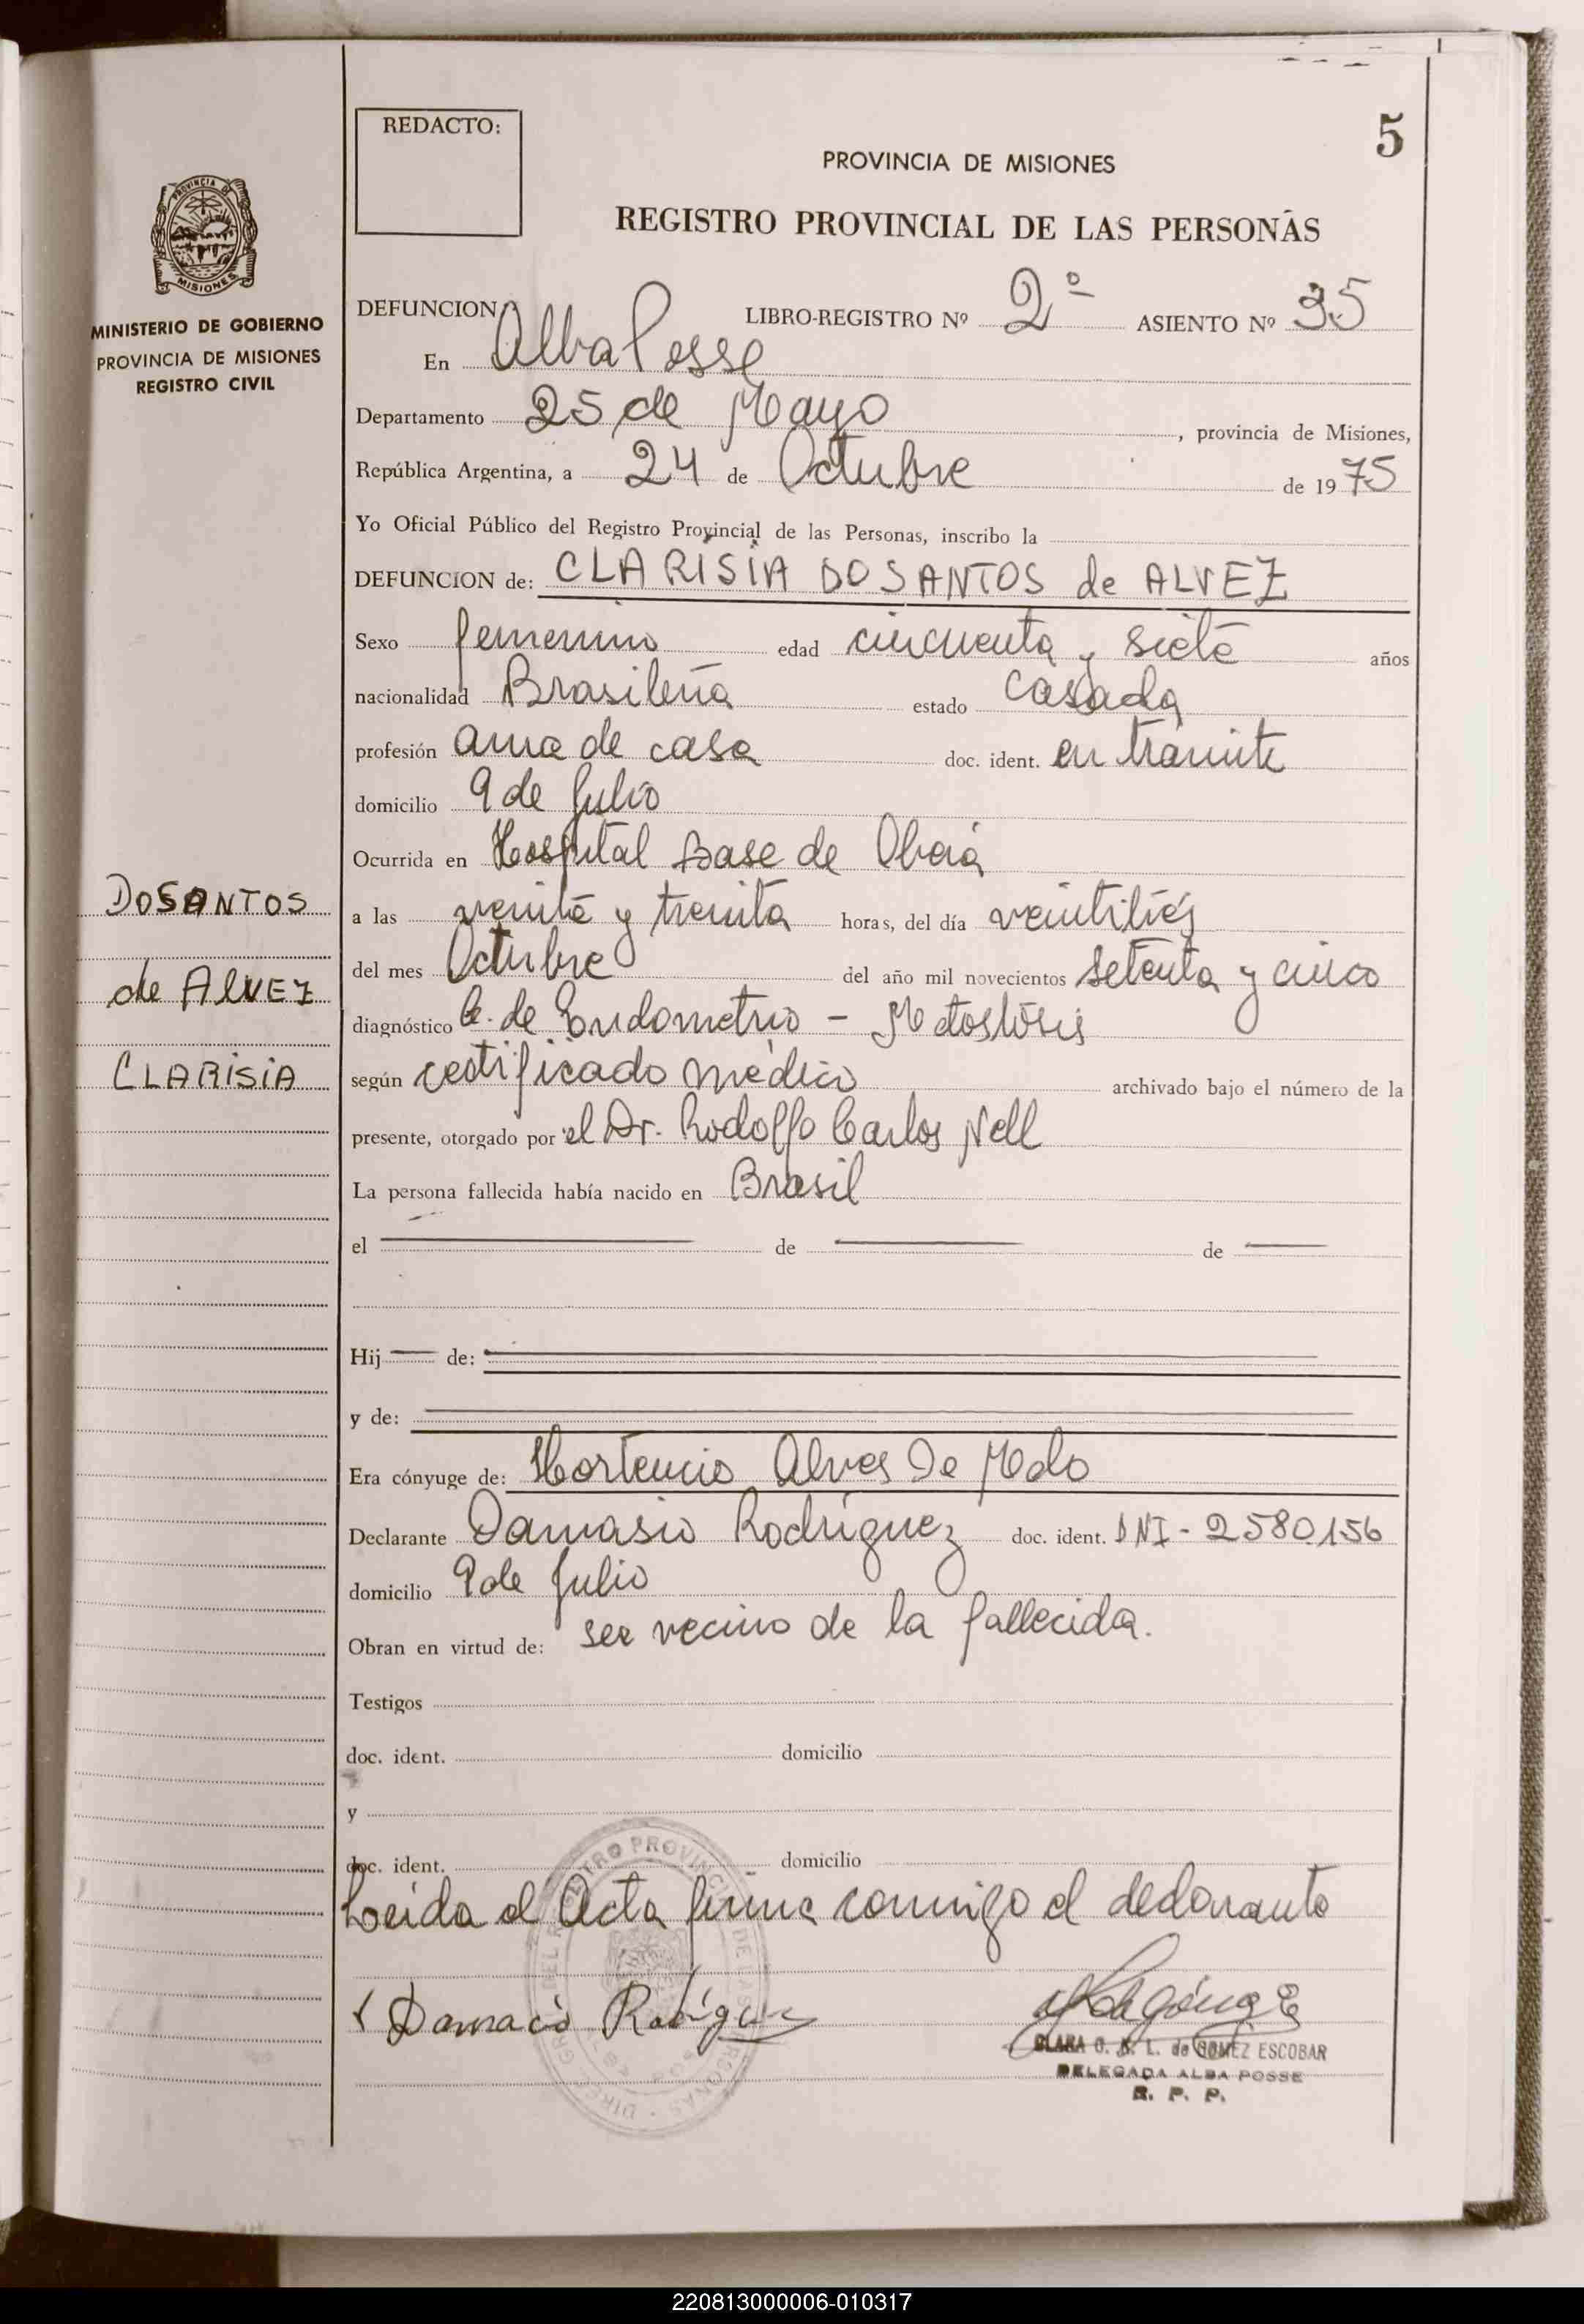 5
REDACTO:
PROVINCIA DE MISIONES
REGISTRO PROVINCIAL DE LAS PERSONAS
MINISTERIO DE GOBIERNO
PROVINCIA DE MISIONES
REGISTRO CIVIL
DEFUNCION LIBRO-REGISTRO Nº 2º ASIENTO Nº 35
En Alba Posse
Departamento 25 de Mayo, provincia de Misiones,
República Argentina, a 24 de Octubre de 1975
Yo Oficial Público del Registro Provincial de las Personas, inscribo la
DEFUNCION de: CLARISIA DOSANTOS de ALVEZ
Sexo femenino edad cincuenta y siete años
nacionalidad Brasileña estado casada
profesión ama de casa doc. ident. en trámite
domicilio 9 de Julio
Ocurrida en Hospital Base de Oberá
a las veinte y treinta horas, del día veintitrés
del mes Octubre del año mil novecientos setenta y cinco
diagnóstico C. de Endometrio - Metastósis
según certificado médico archivado bajo el número de la
presente, otorgado por el Dr. Rodolfo Carlos Nell
La persona fallecida había nacido en Brasil
el de de
Hij de:
y de:
Era cónyuge de: Hortencio Alves De Melo
Declarante Damasio Rodríguez doc. ident. DNI - 2580156
domicilio 9 de Julio
Obran en virtud de: ser vecino de la fallecida.
Testigos
doc. ident. domicilio
y
doc. ident. domicilio
Leída el Acta firma conmigo el declarante
Damacio Rodríguez
CLARA O. L. de GOMEZ ESCOBAR
DELEGADA ALBA POSSE
R. P. P.
DOSANTOS
de ALVEZ
CLARISIA
220813000006-010317